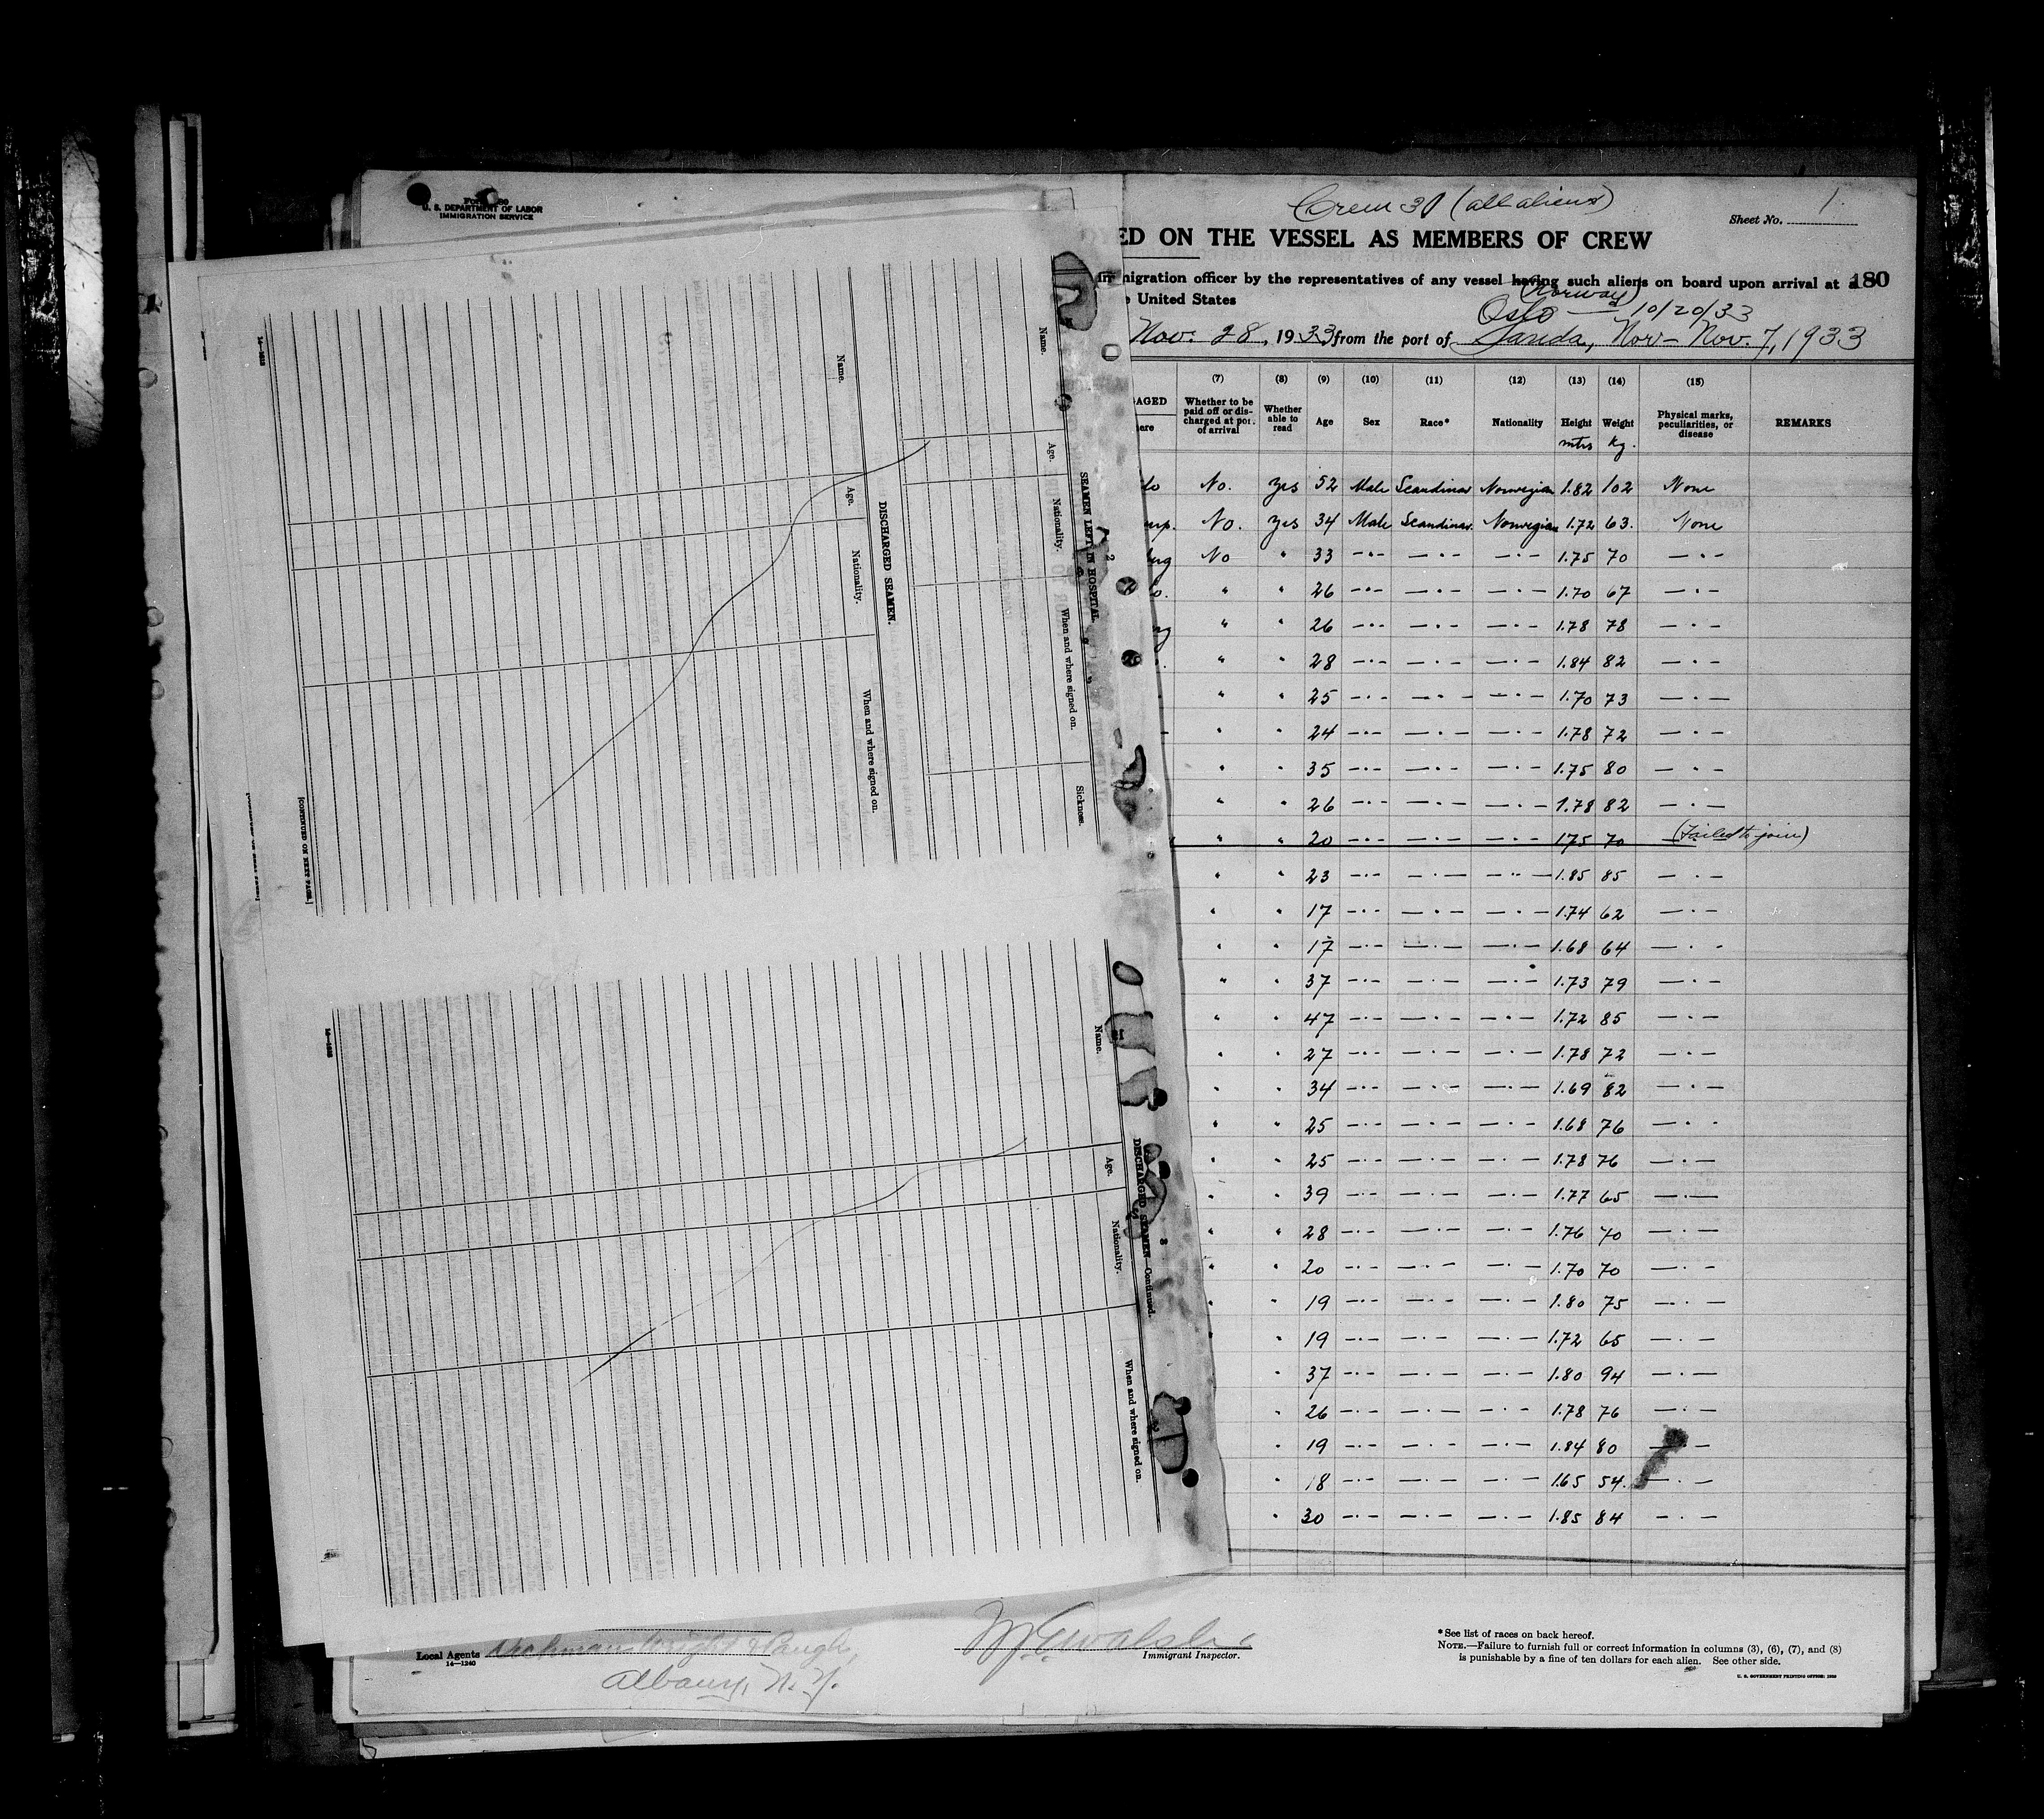 U. S. DEPARTMENT OF LABOR
IMMIGRATION SERVICE
Crew 30 (all aliens)
Sheet No. 1
YED ON THE VESSEL AS MEMBERS OF CREW
migration officer by the representatives of any vessel having such aliens on board upon arrival at a 180
United States
(Norway)
Oslo — 10/20/33
Nov. 28, 1933 from the port of Sauda, Nor— Nov. 7, 1933
(7) (8) (9) (10) (11) (12) (13) (14) (15)
GAGED Whether to be paid off or discharged at port of arrival Whether able to read Age Sex Race* Nationality Height mtrs Weight kg. Physical marks, peculiarities, or disease REMARKS
No. yes 52 Male Scandinav Norwegian 1.82 102 None
No. yes 34 Male Scandinav. Norwegian 1.72 63. None
No " 33 —"— —"— —"— 1.75 70 —"—
" " 26 —"— —"— —"— 1.70 67 —"—
" " 26 —"— —"— —"— 1.78 78 —"—
" " 28 —"— —"— —"— 1.84 82 —"—
" " 25 —"— —"— —"— 1.70 73 —"—
" " 24 —"— —"— —"— 1.78 72 —"—
" " 35 —"— —"— —"— 1.75 80 —"—
" " 26 —"— —"— —"— 1.78 82 —"—
" " 20 —"— —"— —"— 1.75 70 (Failed to join)
" " 23 —"— —"— —"— 1.85 85 —"—
" " 17 —"— —"— —"— 1.74 62 —"—
" " 17 —"— —"— —"— 1.68 64 —"—
" " 37 —"— —"— —"— 1.73 79 —"—
" " 47 —"— —"— —"— 1.72 85 —"—
" " 27 —"— —"— —"— 1.78 72 —"—
" " 34 —"— —"— —"— 1.69 82 —"—
" " 25 —"— —"— —"— 1.68 76 —"—
" " 25 —"— —"— —"— 1.78 76 —"—
" " 39 —"— —"— —"— 1.77 65 —"—
" " 28 —"— —"— —"— 1.76 70 —"—
" " 20 —"— —"— —"— 1.70 70 —"—
" " 19 —"— —"— —"— 1.80 75 —"—
" 19 —"— —"— —"— 1.72 65 —"—
" 37 —"— —"— —"— 1.80 94 —"—
" 26 —"— —"— —"— 1.78 76 —"—
" 19 —"— —"— —"— 1.84 80 —"—
" 18 —"— —"— —"— 1.65 54. —"—
" 30 —"— —"— —"— 1.85 84 —"—
SEAMEN LEFT IN HOSPITAL
Name. Age. Nationality. When and where signed on. Sickness.
DISCHARGED SEAMEN.
Name. Age. Nationality. When and where signed on.
[CONTINUED ON NEXT PAGE.]
DISCHARGED SEAMEN—Continued.
Name. Age. Nationality. When and where signed on.
Local Agents
14—1240
Albany, N.Y.
Immigrant Inspector.
*See list of races on back hereof.
NOTE.—Failure to furnish full or correct information in columns (3), (6), (7), and (8)
is punishable by a fine of ten dollars for each alien. See other side.